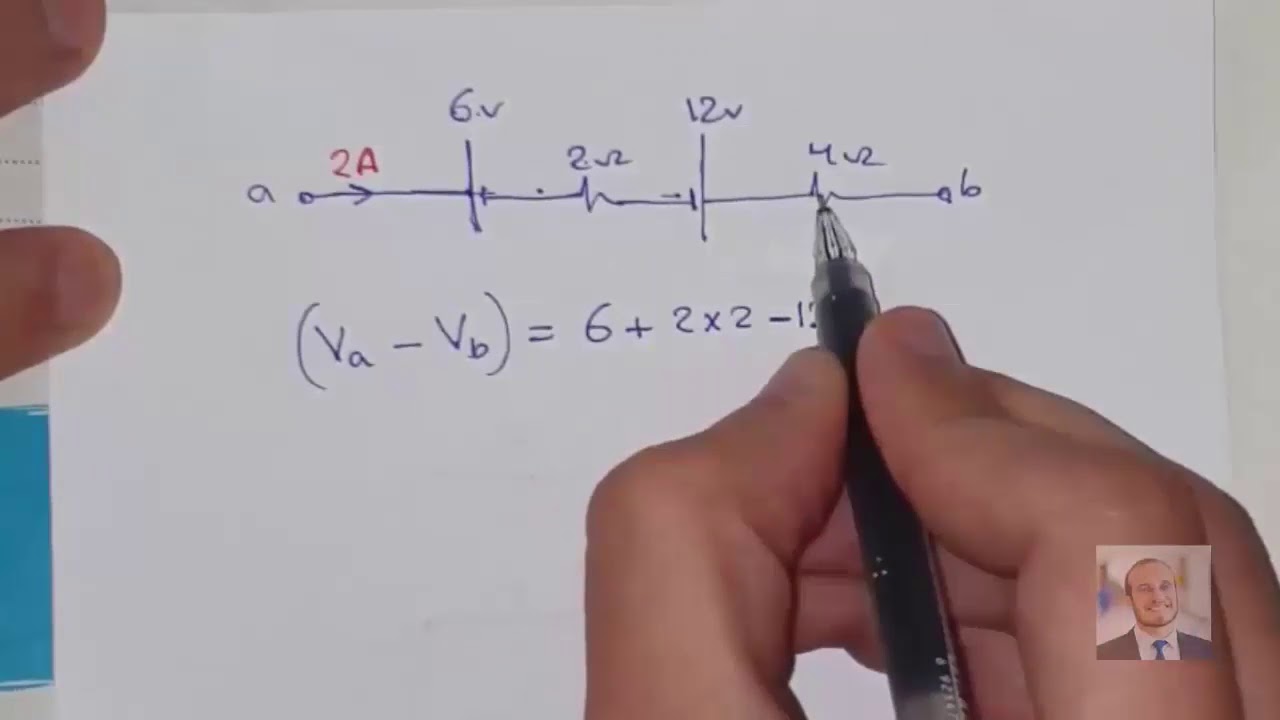 6.v 12v
2A 2Ω 4Ω
a b
(Va - Vb) = 6 + 2 x 2 - 1